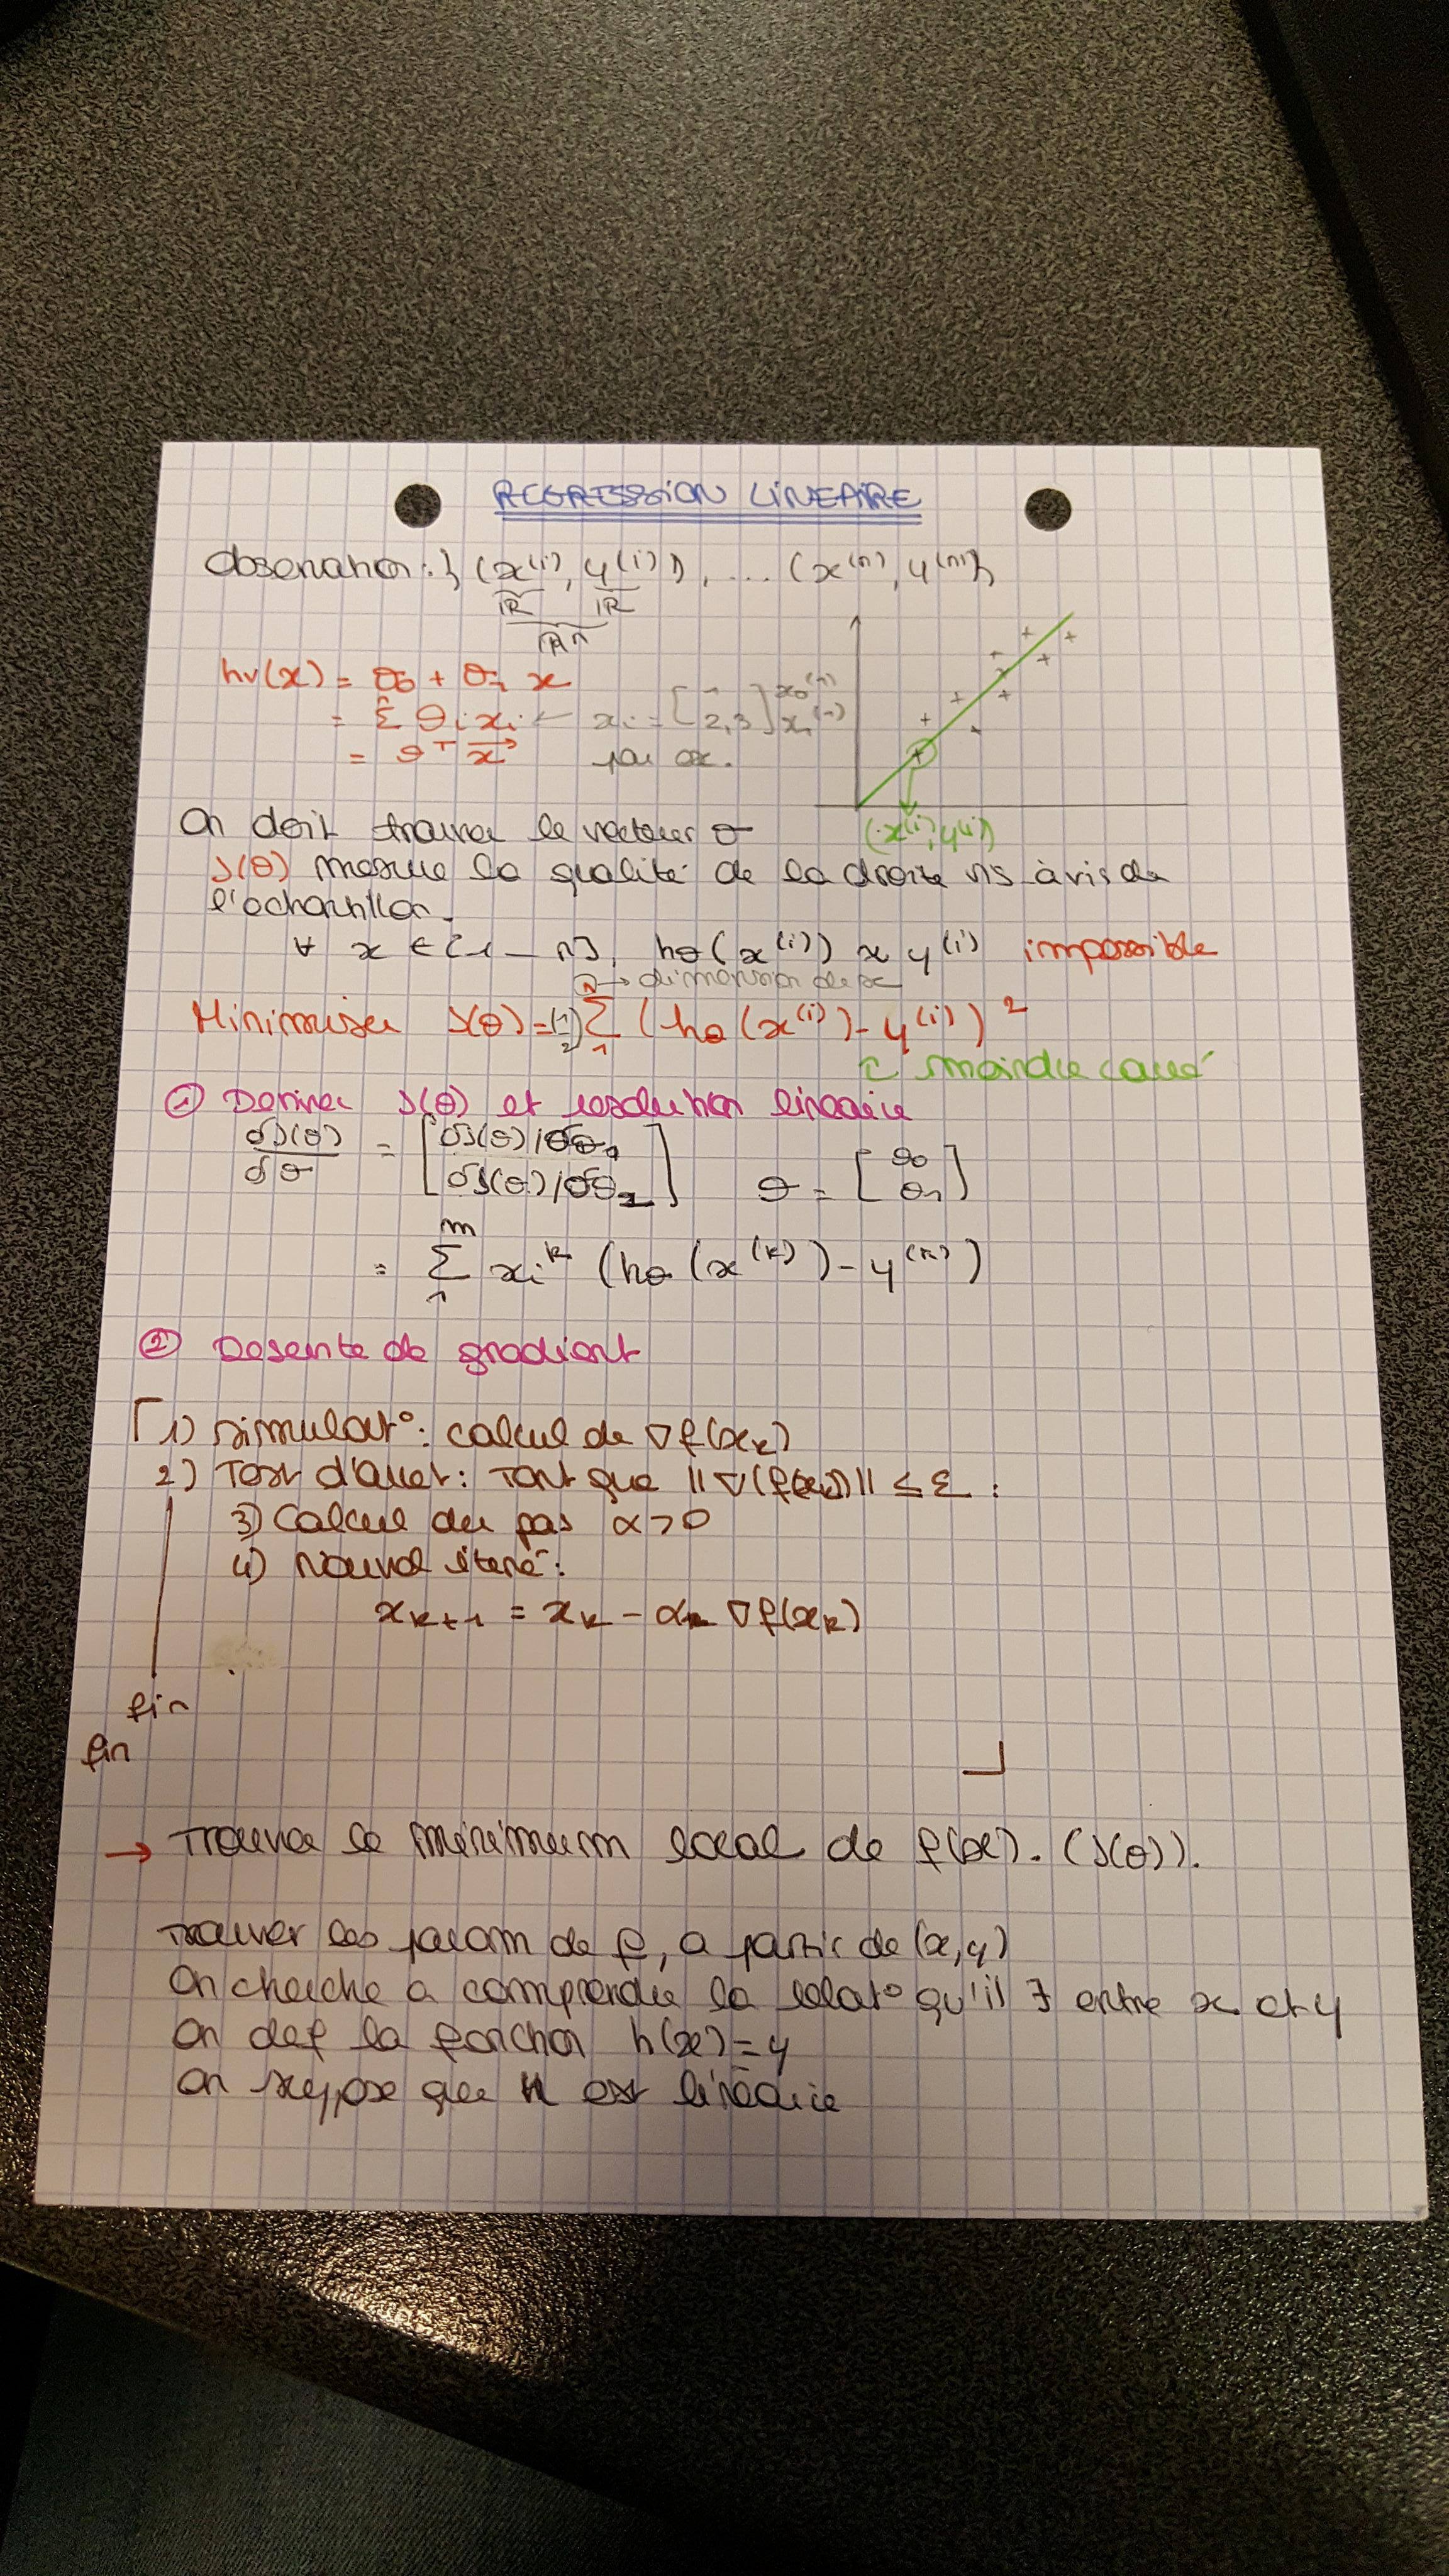 REGRESSION LINEAIRE
Observation : { (x^(i), y^(i)), .... (x^(n), y^(n)}
IR IR
IR^n
hv(x) = θ0 + θ1 x
= Σ θi xi ← xi = [1 2,3] x0^(1) x1^(1)
= θ^T x→ par ex.
(x^(i), y^(i))
On doit trouver le vecteur θ
J(θ) mesure la qualité de la droite vis à vis de
l'échantillon.
∀ x ∈ [1 _ n], hθ(x^(i)) ≈ y^(i) impossible
n → dimension de x
Minimiser J(θ) = (1/2) Σ 1 (hθ(x^(i)) - y^(i))²
moindre carré
① Deriver J(θ) et resolution lineaire
δJ(θ)/δθ = [δJ(θ)/δθ0 δJ(θ)/δθ1] θ = [θ0 θ1]
= Σ 1 m xi^k (hθ(x^(k)) - y^(k))
② Desente de gradient
1) simulat°: calcul de ∇f(xk)
2) Test d'arret : Tant que ||∇(f(xk))|| ≤ Ɛ :
3) Calcul du pas α > 0
4) Nouvel itéré :
xk+1 = xk - αk ∇f(xk)
fin
fin
→ Trouver le minimum local de f(x). (J(θ)).
Trouver les param de f, a partir de (x,y)
On cherche a comprendre la relat° qu'il ∃ entre x et y
On def la fonction h(x) = y
On suppose que h est linéaire